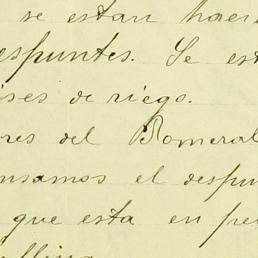 se estan hacie
espuntes. Se est
ises de riego.
res del Romeral
nsamos el despun
que esta en pe